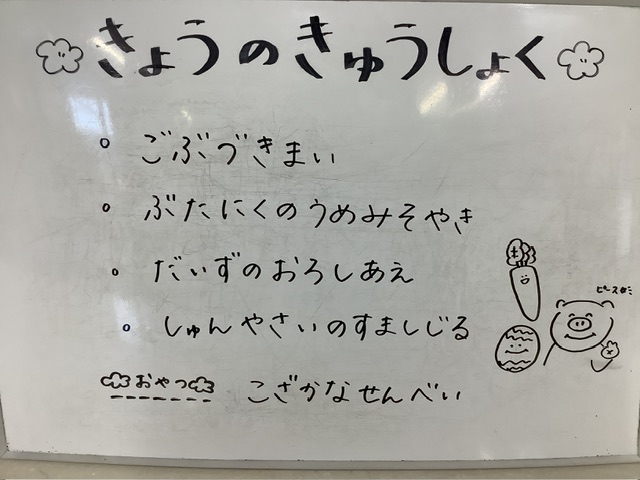 きょうのきゅうしょく
ごぶづきまい
ぶたにくのうめみそやき
だいずのおろしあえ
しゅんやさいのすましじる
おやつ こざかなせんべい